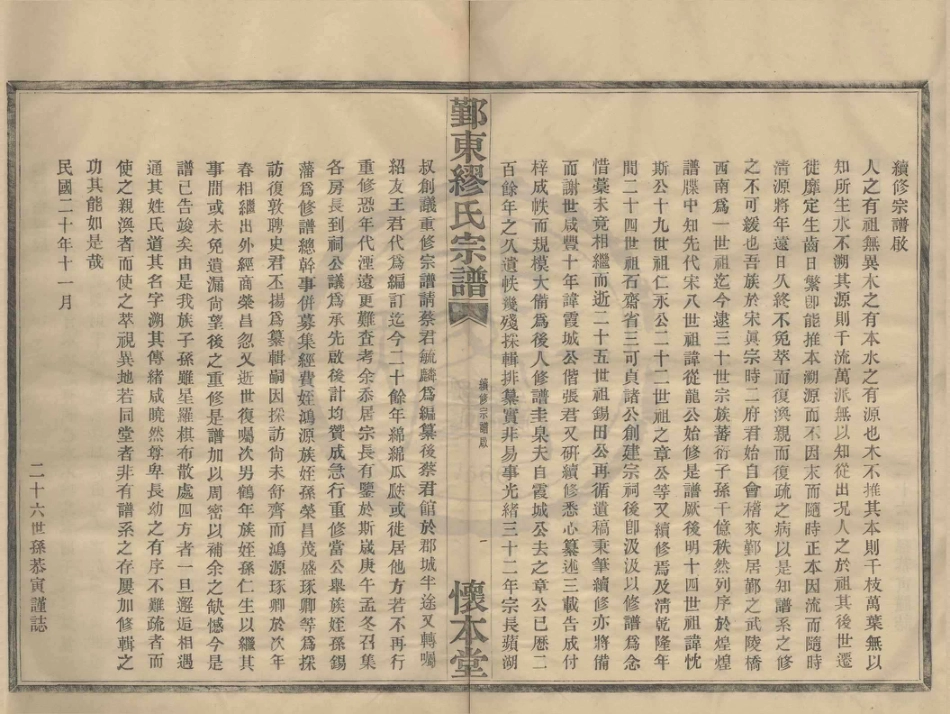 續修宗譜啟
人之有祖無異木之有本水之有源也木不推其本則千枝萬葉無以
知所生水不溯其源則千流萬派無以知從出况人之於祖其後世遷
徙靡定生齒日繁卽能推本溯源而不因末而隨時正本因流而隨時
清源將年遠日久終不免萃而復渙親而復疏之病以是知譜系之修
之不可緩也吾族於宋眞宗時二府君始自會稽來鄞居鄞之武陵橋
西南爲一世祖迄今逮三十世宗族蕃衍子孫千億秩然列序於煌煌
譜牒中知先代宋八世祖諱從龍公始修是譜厥後明十四世祖諱忱
斯公十九世祖仁永公二十二世祖之章公等又續修焉及淸乾隆年
間二十四世祖石齋省三可貞諸公創建宗祠後卽汲汲以修譜爲念
惜藁未竟相繼而逝二十五世祖錫田公再循遺稿秉筆續修亦將備
而謝世咸豐十年諱霞城公偕張君又研續修悉心纂述三載告成付
梓成帙而規模大備爲後人修譜圭臬夫自霞城公去之章公已歷二
百餘年之久遺帙幾殘採輯排纂實非易事光緒三十二年宗長蘋湖
鄞東繆氏宗譜
續修宗譜啟
一
懷本堂
叔創議重修宗譜請蔡君毓麟爲編纂後蔡君館於郡城半途又轉囑
紹友王君代爲編訂迄今二十餘年綿綿瓜瓞或徙居他方若不再行
重修恐年代湮遠更難查考余忝居宗長有鑒於斯歲庚午孟冬召集
各房長到祠公議爲承先啟後計均贊成急行重修當公舉族姪孫錫
藩爲修譜總幹事併募集經費姪鴻源族姪孫榮昌茂盛琢卿等爲採
訪復敦聘史君丕揚爲纂輯嗣因採訪尙未舒齊而鴻源琢卿於次年
春相繼出外經商榮昌忽又逝世復囑次男鶴年族姪孫仁生以繼其
事間或未免遺漏尙望後之重修是譜加以周密以補余之缺憾今是
譜已告竣矣由是我族子孫雖星羅棋布散處四方者一旦邂逅相遇
通其姓氏道其名字溯其傳緒咸曉然尊卑長幼之有序不難疏者而
使之親渙者而使之萃視異地若同堂者非有譜系之存屢加修輯之
功其能如是哉
民國二十年十一月
二十六世孫恭寅謹誌